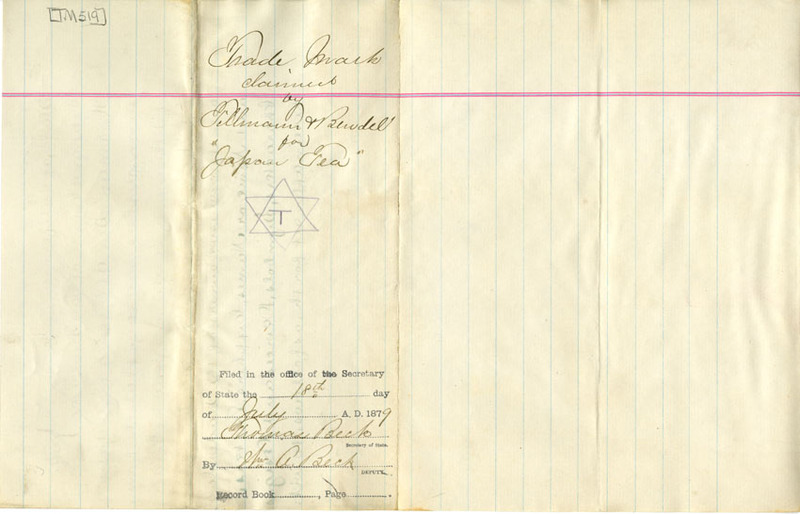 TM519
Trade Mark
claimed
by
Tillmann & Bendel
for
"Japan Tea"
T
Filed in the office of the Secretary
of State the 18th day
of July A. D. 1879
Thomas Beck
Secretary of State.
By Wm A. Beck
DEPUTY.
Record Book , Page .